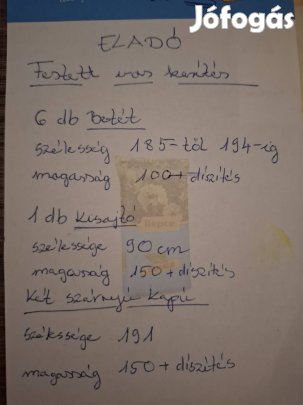 Jófogás
ELADÓ
Festett vas kerítés
6 db Betét
szélesség 185-től 194-ig
magasság 100 + díszítés
1 db Kisajtó
szélessége 90 cm
magasság 150 + díszítés
Két szárnyú kapu
székssége 191
magasság 150 + díszítés